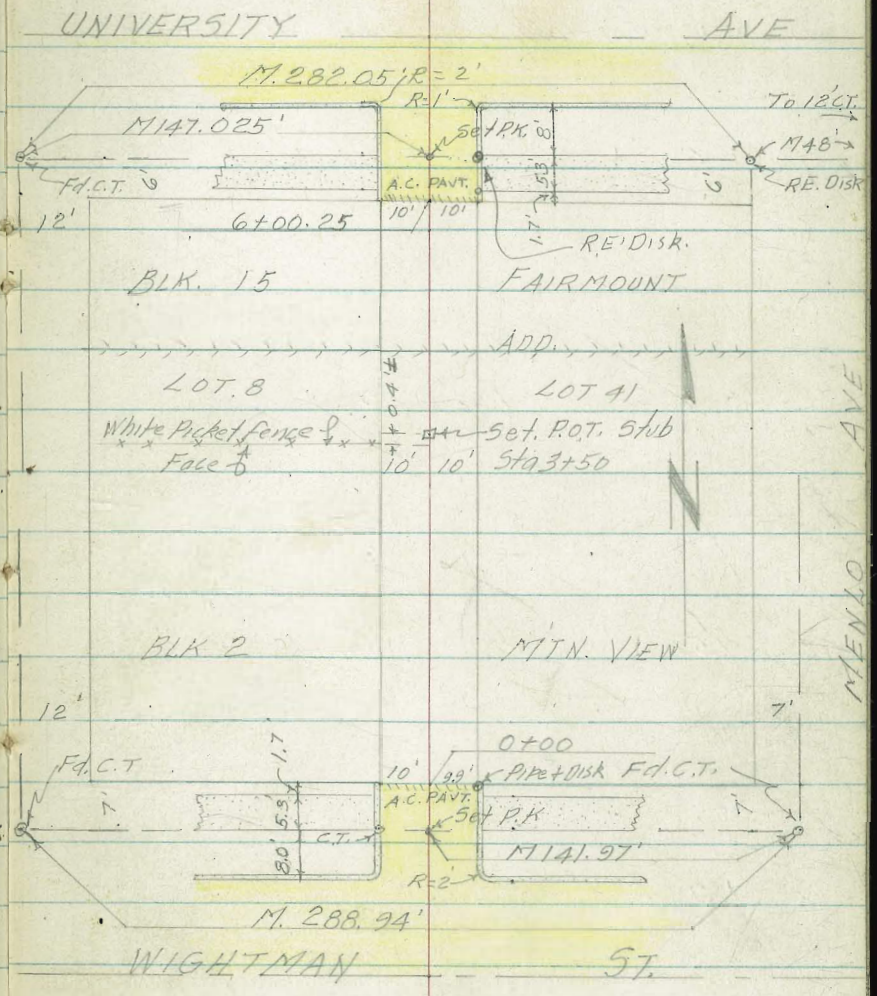 UNIVERSITY AVE
M. 282.05' R = 2'
R=1'
To 12' C.T.
M147.025'
Set P.K.
8'
M48'
Fd. C.T.
6'
A.C. PAVT.
5.3'
6'
R.E. Disk
12'
6+00.25
10' 10'
1.7'
R.E. Disk.
BLK. 15
FAIRMOUNT
ADD.
LOT. 8
LOT 41
White Picket fence &
Set. P.O.T. Stub
Face of
10' 10'
Sta 3+50
N
MENLO AVE
BLK 2
MTN. VIEW
12'
7'
1.7
0+00
Fd. C.T
10' 9.9'
Pipe & Disk
Fd. C.T.
A.C. PAVT.
7'
5.3'
Set P.K
7'
8.0'
C.T.
M141.97'
R=2'
M. 288.94'
WIGHTMAN ST.